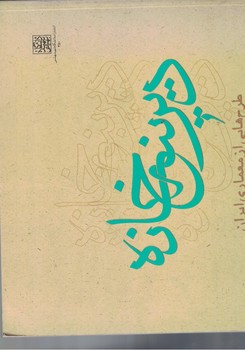 دیرینه خانه
طرح‌هایی از معماری ایران